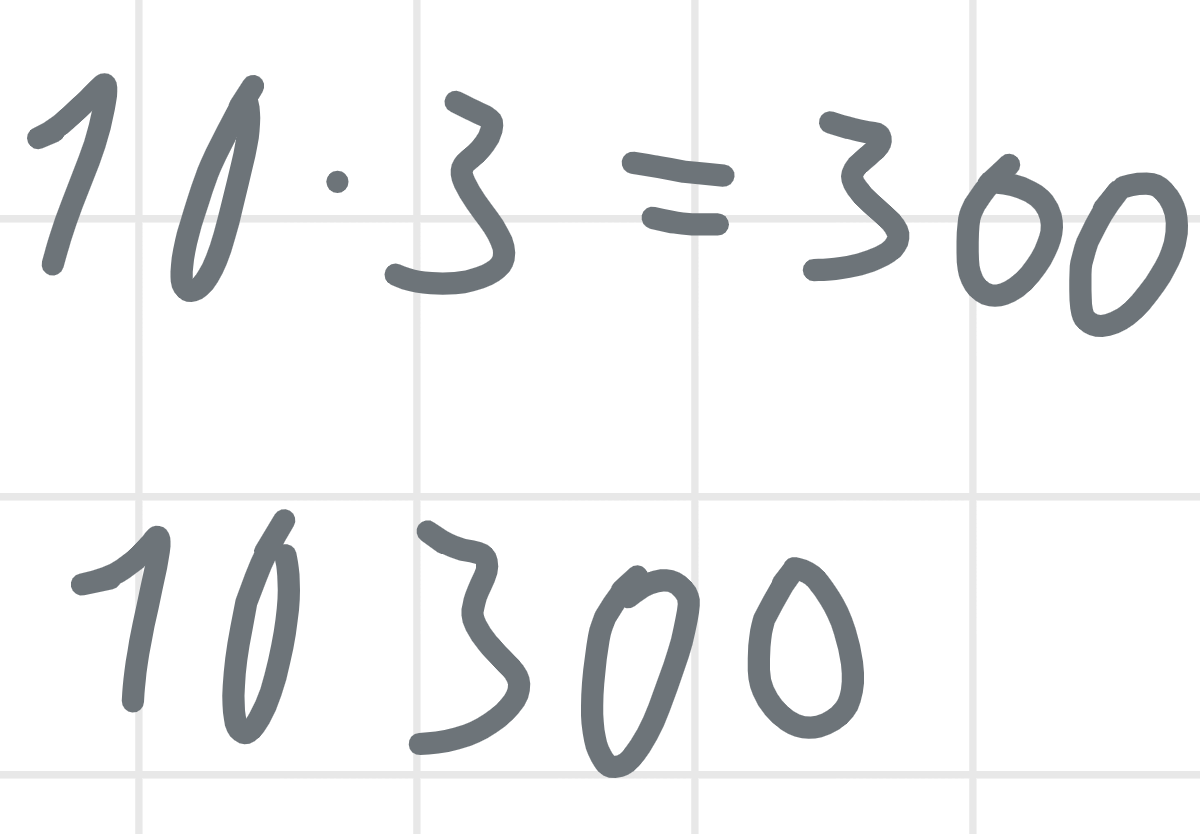 10 · 3 = 300
10 300